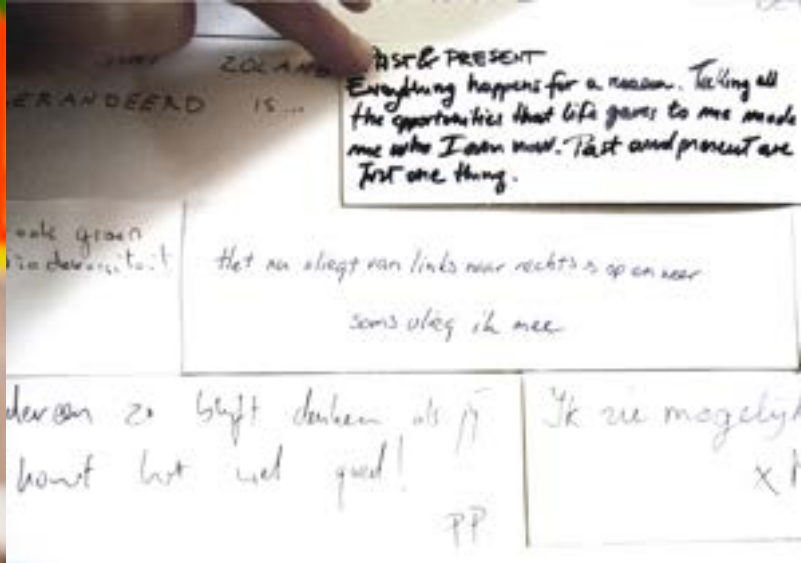 ZOLANG
VERANDEERD IS...
PAST & PRESENT
Everything happens for a reason. Taking all
the opportunities that life gives to me made
me who I am now. Past and present are
Just one thing.
ook groen
Het nu vliegt van links naar rechts op en neer
soms vlieg ik mee
zo blijft denken als jij
komt het wel goed!
PP
Ik zie mogelijkh
x